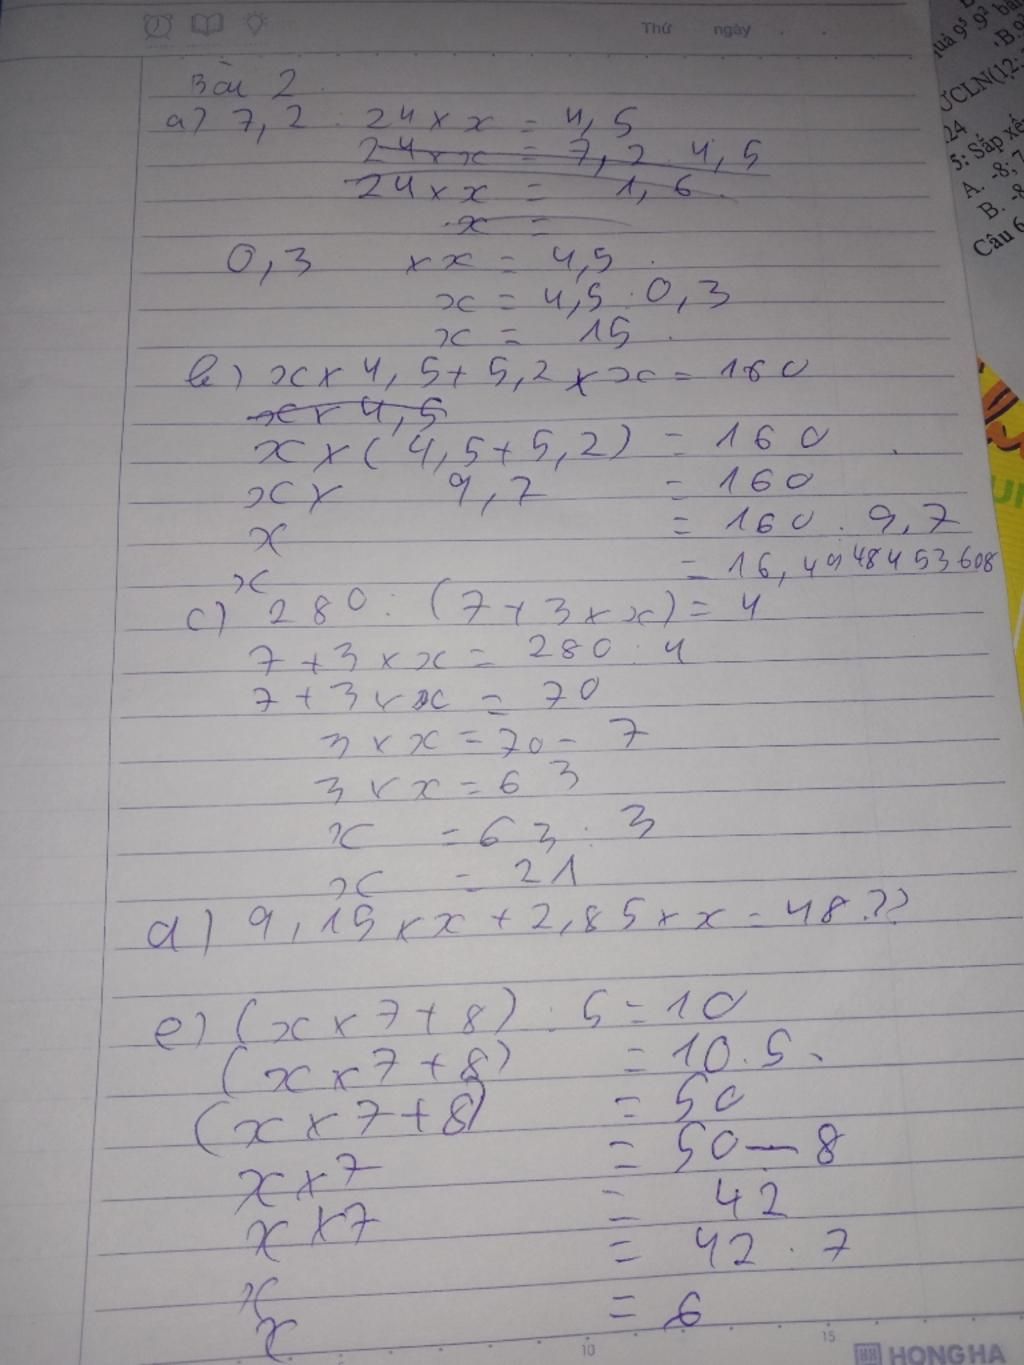 Thứ ngày
Bài 2
a) 7,2 : 24 × x = 4,5
24 × x = 7,2 : 4,5
24 × x = 1,6
x =
0,3 × x = 4,5
x = 4,5 : 0,3
x = 15
b) x × 4,5 + 5,2 × x = 160
x × 4,5
x × ( 4,5 + 5,2 ) = 160
x × 9,7 = 160
x = 160 : 9,7
x = 16,4948453608
c) 280 : (7 + 3 × x) = 4
7 + 3 × x = 280 : 4
7 + 3 × x = 70
3 × x = 70 - 7
3 × x = 63
x = 63 : 3
x = 21
d) 9,15 × x + 2,85 × x = 48 ??
e) (x × 7 + 8) : 5 = 10
(x × 7 + 8) = 10 . 5
(x × 7 + 8) = 50
x × 7 = 50 - 8
x × 7 = 42
x = 42 : 7
x = 6
10 15
HONG HA
quả 9⁵ 9²
B.9
ƯCLN(12;
24
5: Sắp xế
A. -8; 7
B. -8
Câu 6